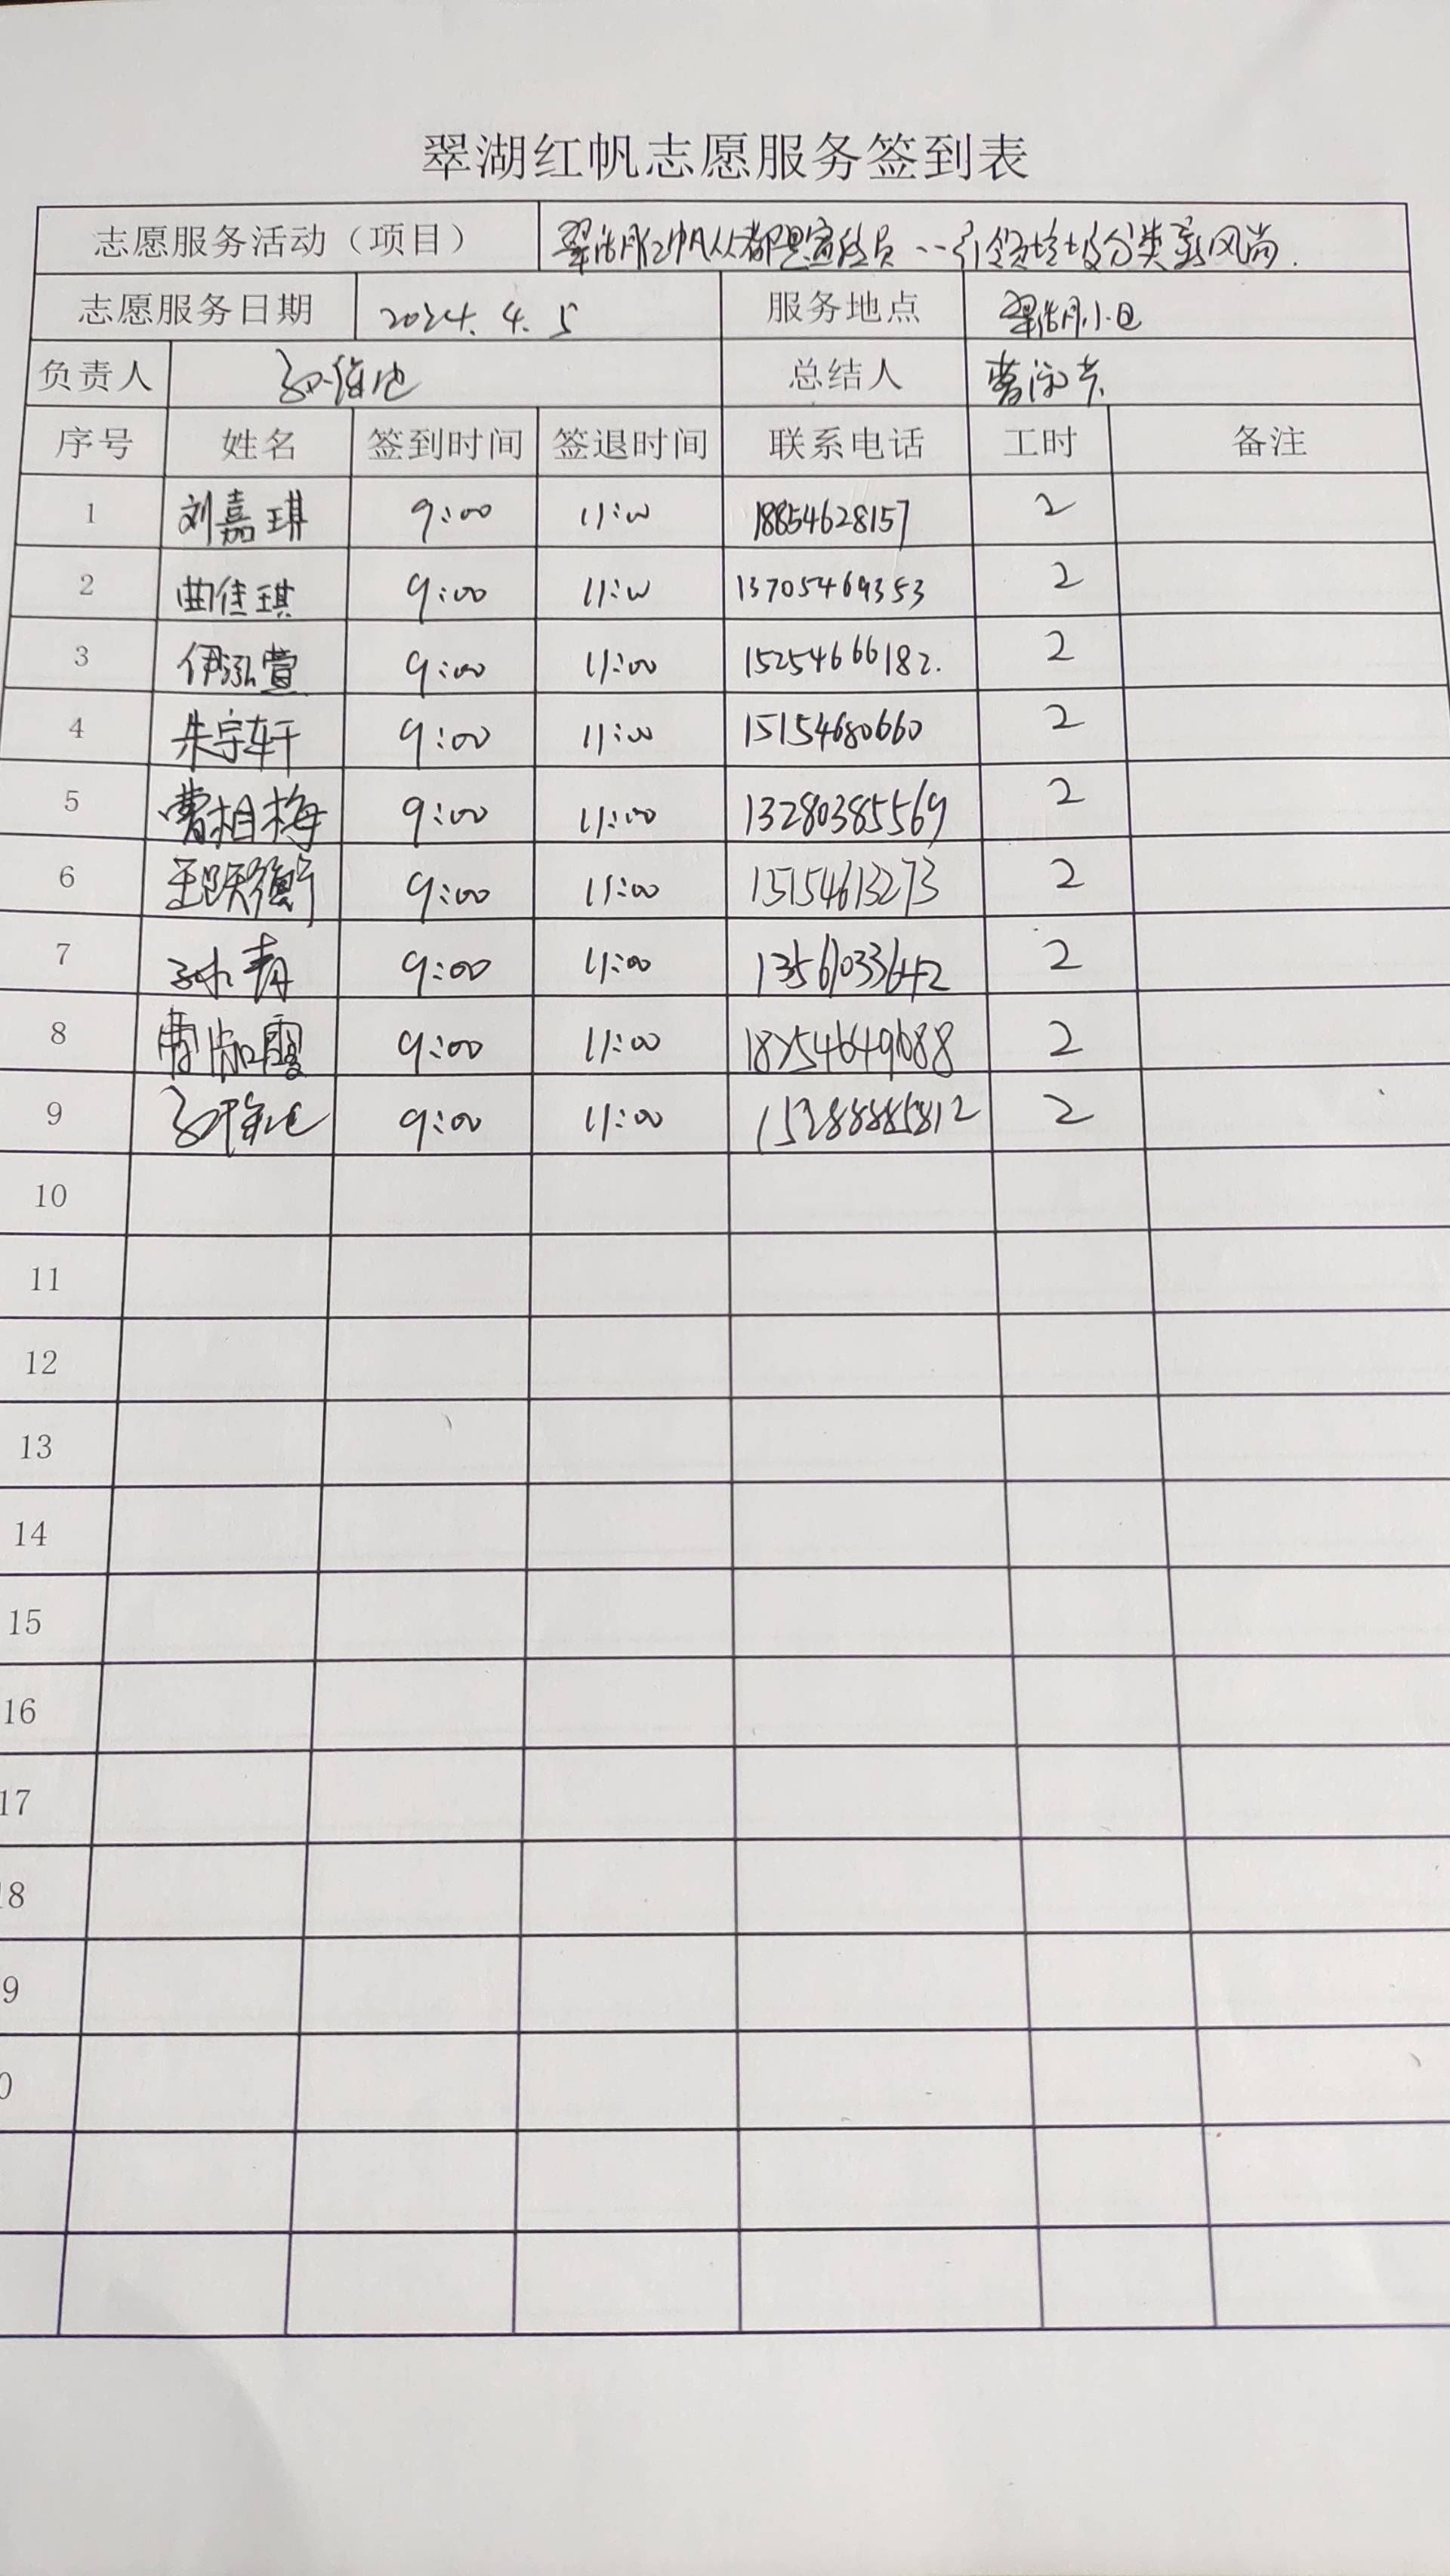 翠湖红帆志愿服务签到表
志愿服务活动（项目） 翠湖红帆人人都是宣传员--引领垃圾分类新风尚.
志愿服务日期 2024.4.5 服务地点 翠湖小区
负责人 总结人
序号 姓名 签到时间 签退时间 联系电话 工时 备注
1 刘嘉琪 9:00 11:00 18854628157 2
2 曲佳琪 9:00 11:00 13705469353 2
3 伊泓萱 9:00 11:00 15254666182. 2
4 朱宇轩 9:00 11:00 15154680660 2
5 曹相梅 9:00 11:00 13280385569 2
6 9:00 11:00 15154613273 2
7 孙青 9:00 11:00 13561033642 2
8 9:00 11:00 18254649688 2
9 9:00 11:00 15288885812 2
10
11
12
13
14
15
16
17
18
9
0